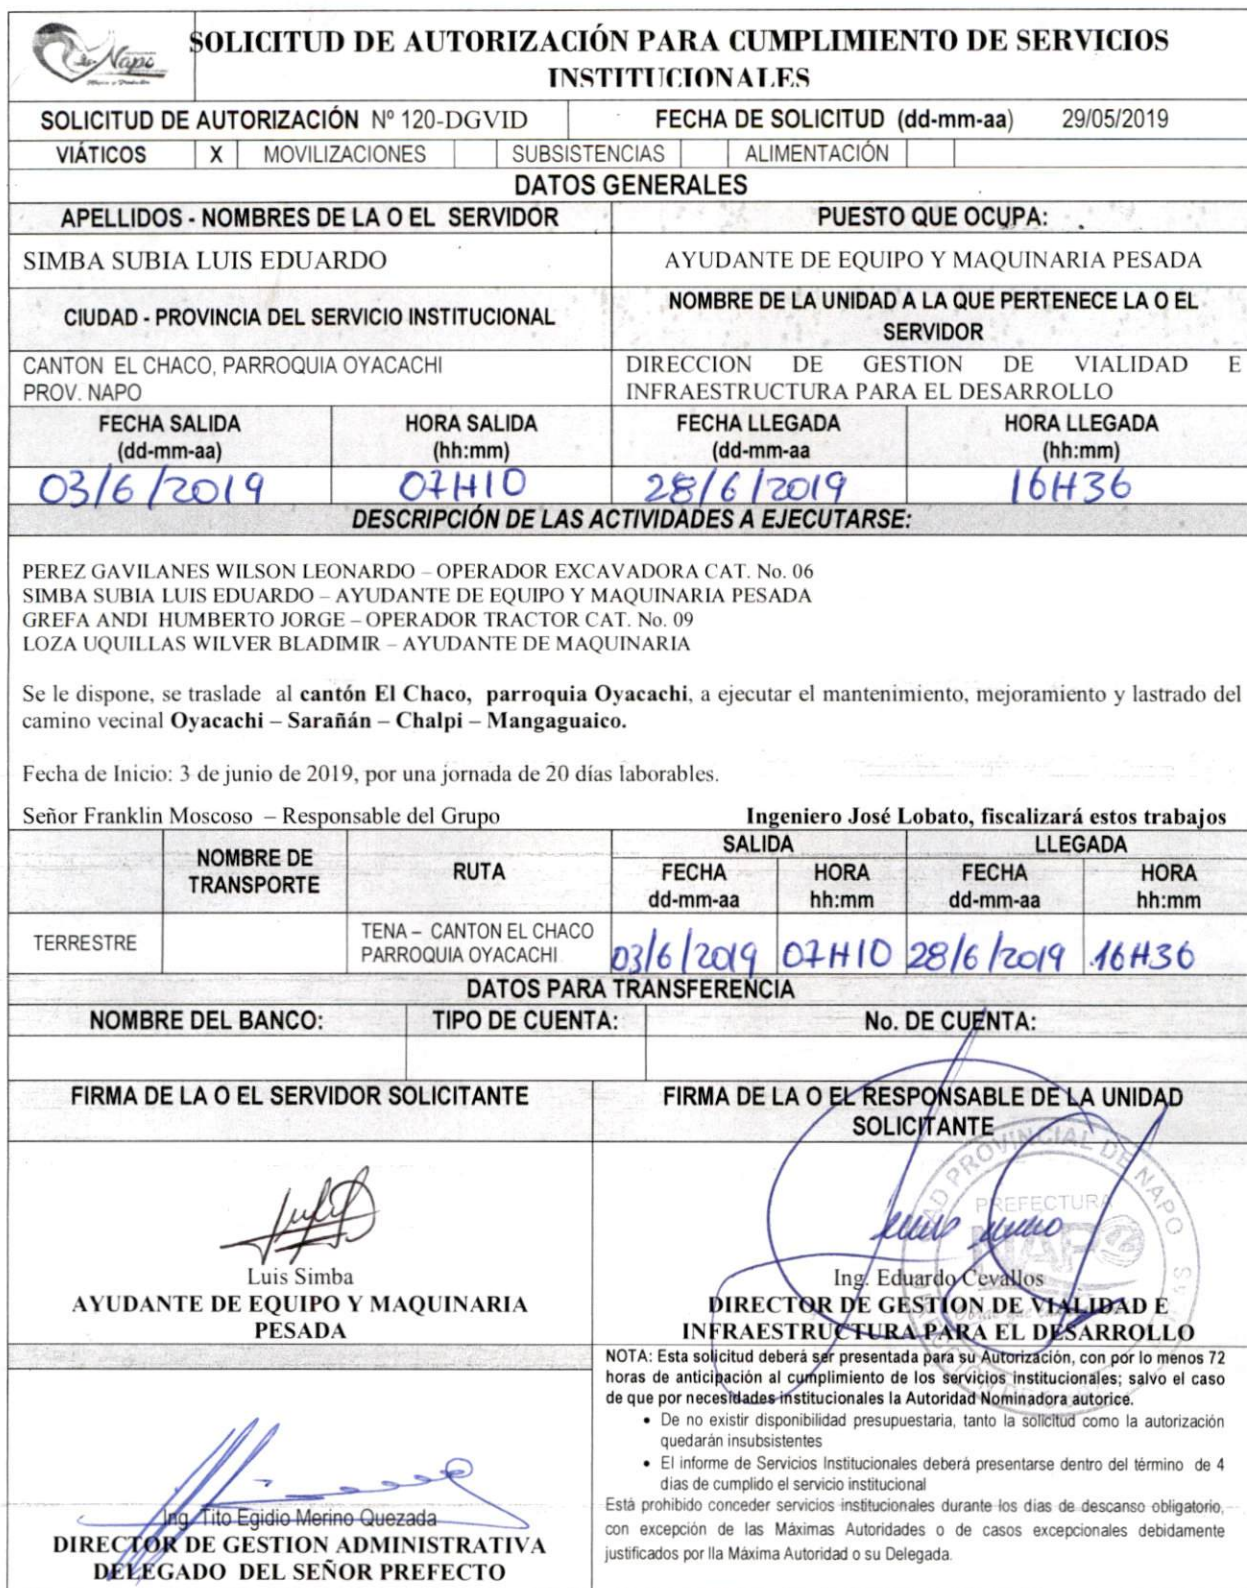 Napo
SOLICITUD DE AUTORIZACIÓN PARA CUMPLIMIENTO DE SERVICIOS
INSTITUCIONALES
SOLICITUD DE AUTORIZACIÓN Nº 120-DGVID FECHA DE SOLICITUD (dd-mm-aa) 29/05/2019
VIÁTICOS X MOVILIZACIONES SUBSISTENCIAS ALIMENTACIÓN
DATOS GENERALES
APELLIDOS - NOMBRES DE LA O EL SERVIDOR PUESTO QUE OCUPA:
SIMBA SUBIA LUIS EDUARDO AYUDANTE DE EQUIPO Y MAQUINARIA PESADA
CIUDAD - PROVINCIA DEL SERVICIO INSTITUCIONAL
NOMBRE DE LA UNIDAD A LA QUE PERTENECE LA O EL
SERVIDOR
CANTON EL CHACO, PARROQUIA OYACACHI
PROV. NAPO
DIRECCION DE GESTION DE VIALIDAD E
INFRAESTRUCTURA PARA EL DESARROLLO
FECHA SALIDA HORA SALIDA FECHA LLEGADA HORA LLEGADA
(dd-mm-aa) (hh:mm) (dd-mm-aa (hh:mm)
03/6/2019 07H10 28/6/2019 16H36
DESCRIPCIÓN DE LAS ACTIVIDADES A EJECUTARSE:
PEREZ GAVILANES WILSON LEONARDO – OPERADOR EXCAVADORA CAT. No. 06
SIMBA SUBIA LUIS EDUARDO – AYUDANTE DE EQUIPO Y MAQUINARIA PESADA
GREFA ANDI HUMBERTO JORGE – OPERADOR TRACTOR CAT. No. 09
LOZA UQUILLAS WILVER BLADIMIR – AYUDANTE DE MAQUINARIA
Se le dispone, se traslade al cantón El Chaco, parroquia Oyacachi, a ejecutar el mantenimiento, mejoramiento y lastrado del
camino vecinal Oyacachi – Sarañán – Chalpi – Mangaguaico.
Fecha de Inicio: 3 de junio de 2019, por una jornada de 20 días laborables.
Señor Franklin Moscoso – Responsable del Grupo Ingeniero José Lobato, fiscalizará estos trabajos
NOMBRE DE
TRANSPORTE
RUTA
SALIDA LLEGADA
FECHA HORA FECHA HORA
dd-mm-aa hh:mm dd-mm-aa hh:mm
TERRESTRE
TENA – CANTON EL CHACO
PARROQUIA OYACACHI
03/6/2019 07H10 28/6/2019 16H36
DATOS PARA TRANSFERENCIA
NOMBRE DEL BANCO: TIPO DE CUENTA: No. DE CUENTA:
FIRMA DE LA O EL SERVIDOR SOLICITANTE
FIRMA DE LA O EL RESPONSABLE DE LA UNIDAD
SOLICITANTE
PROVINCIAL DE NAPO
PREFECTURA
NAPO
Luis Simba
AYUDANTE DE EQUIPO Y MAQUINARIA
PESADA
Ing. Eduardo Cevallos
DIRECTOR DE GESTION DE VIALIDAD E
INFRAESTRUCTURA PARA EL DESARROLLO
NOTA: Esta solicitud deberá ser presentada para su Autorización, con por lo menos 72
horas de anticipación al cumplimiento de los servicios institucionales; salvo el caso
de que por necesidades institucionales la Autoridad Nominadora autorice.
• De no existir disponibilidad presupuestaria, tanto la solicitud como la autorización
quedarán insubsistentes
• El informe de Servicios Institucionales deberá presentarse dentro del término de 4
días de cumplido el servicio institucional
Está prohibido conceder servicios institucionales durante los días de descanso obligatorio,
con excepción de las Máximas Autoridades o de casos excepcionales debidamente
justificados por lla Máxima Autoridad o su Delegada.
Ing. Tito Egidio Merino Quezada
DIRECTOR DE GESTION ADMINISTRATIVA
DELEGADO DEL SEÑOR PREFECTO